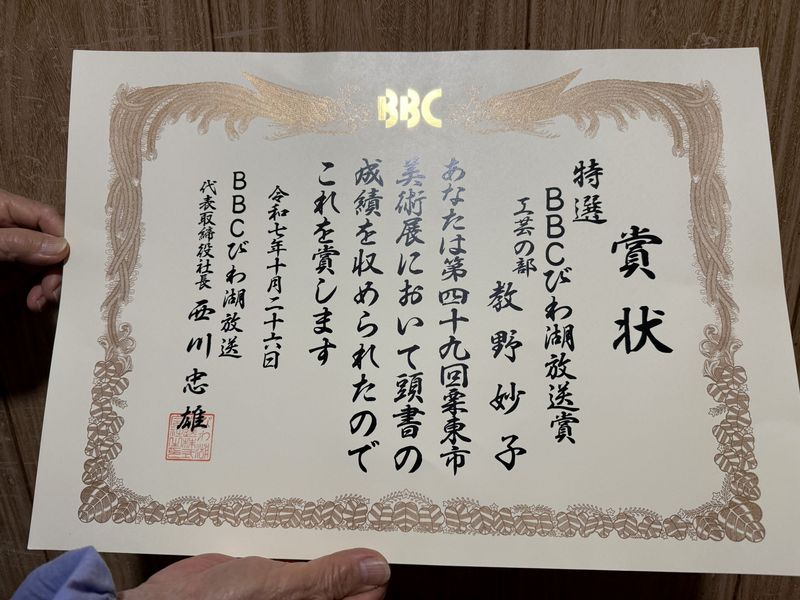 BBC
賞状
特選
BBCびわ湖放送賞
工芸の部
教野妙子
あなたは第四十九回栗東市
美術展において頭書の
成績を収められたので
これを賞します
令和七年十月二十六日
BBCびわ湖放送
代表取締役社長 西川忠雄